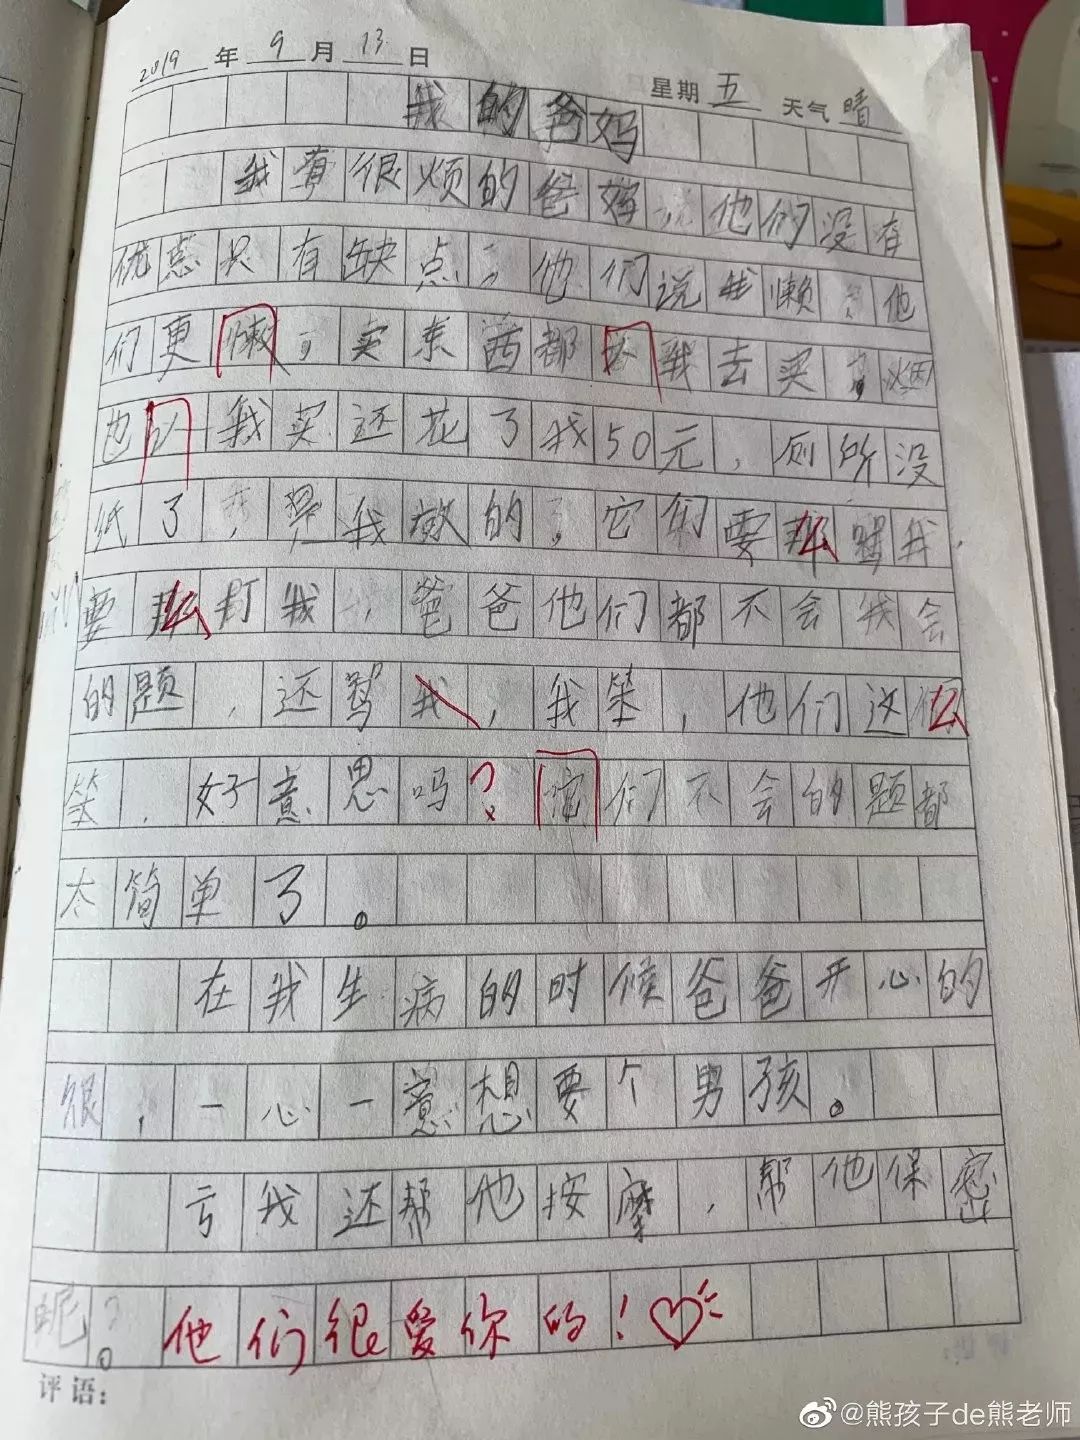 2019年9月13日
星期五 天气晴
我的爸妈
我有很烦的爸妈,说他们没有
优点只有缺点,他们说我懒,他
们更懒,卖东西都 我去买,烟
也 我买还花了我50元,厕所没
纸了, 是我 的,它们要么骂我,
要么打我,爸爸他们都不会我会
的题,还骂我,我笨,他们这么
笨,好意思吗?它们不会的题都
太简单了。
在我生病的时候爸爸开心的
很,一心一意想要个男孩。
亏我还帮他按摩,帮他保密
呢。他们很爱你的!
评语:
@熊孩子de熊老师